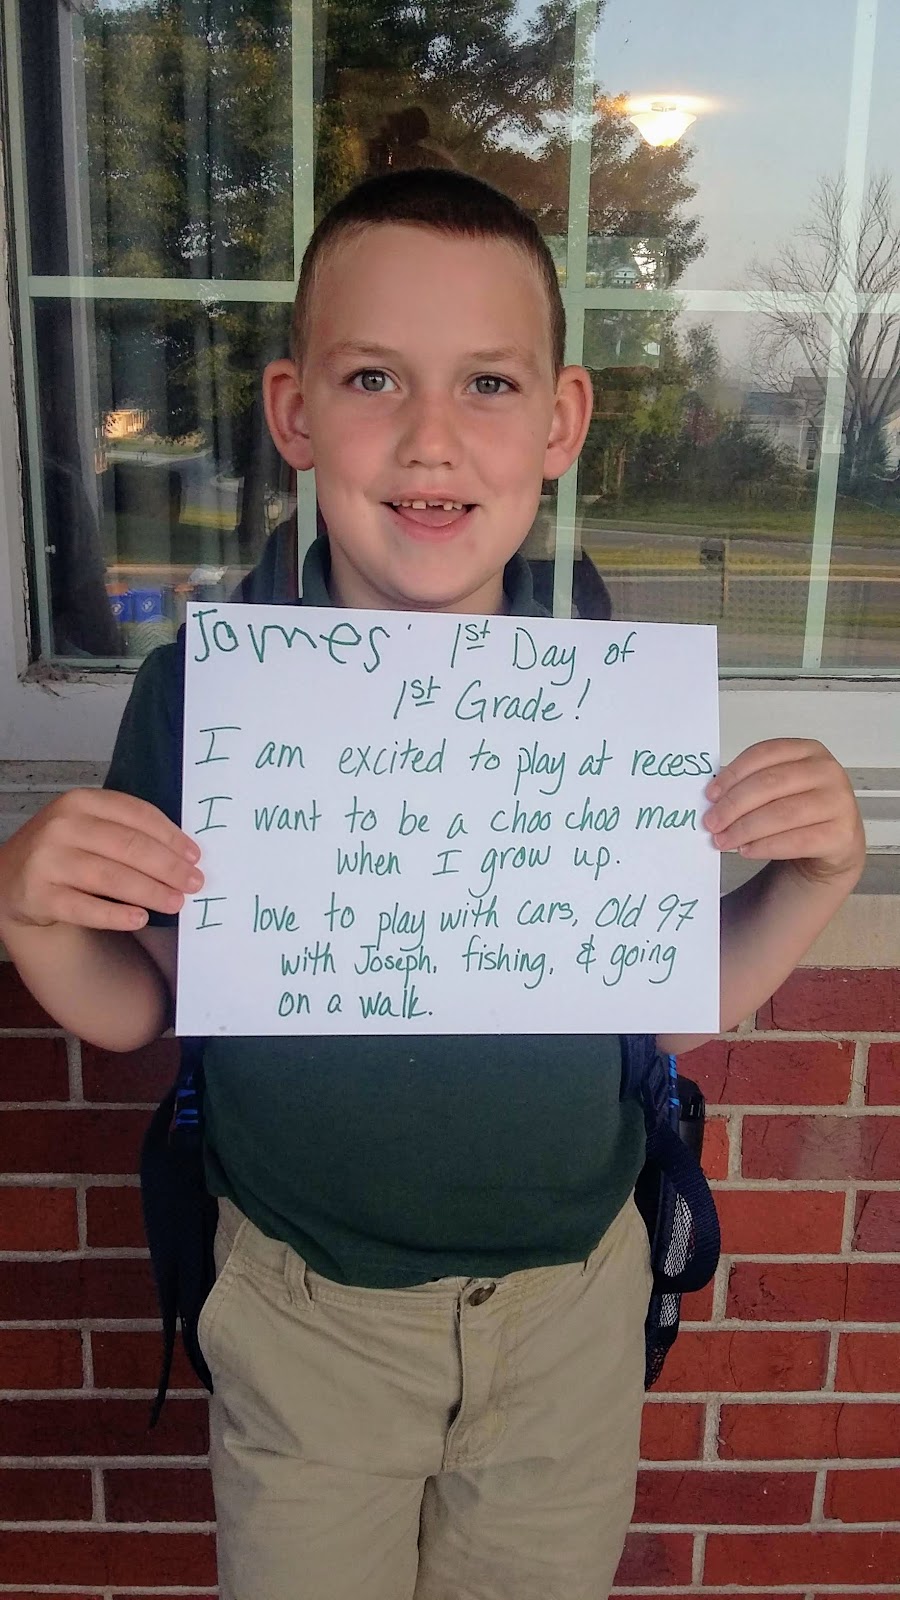 James' 1st Day of
1st Grade!
I am excited to play at recess.
I want to be a choo choo man
when I grow up.
I love to play with cars, Old 97
with Joseph, fishing, & going
on a walk.